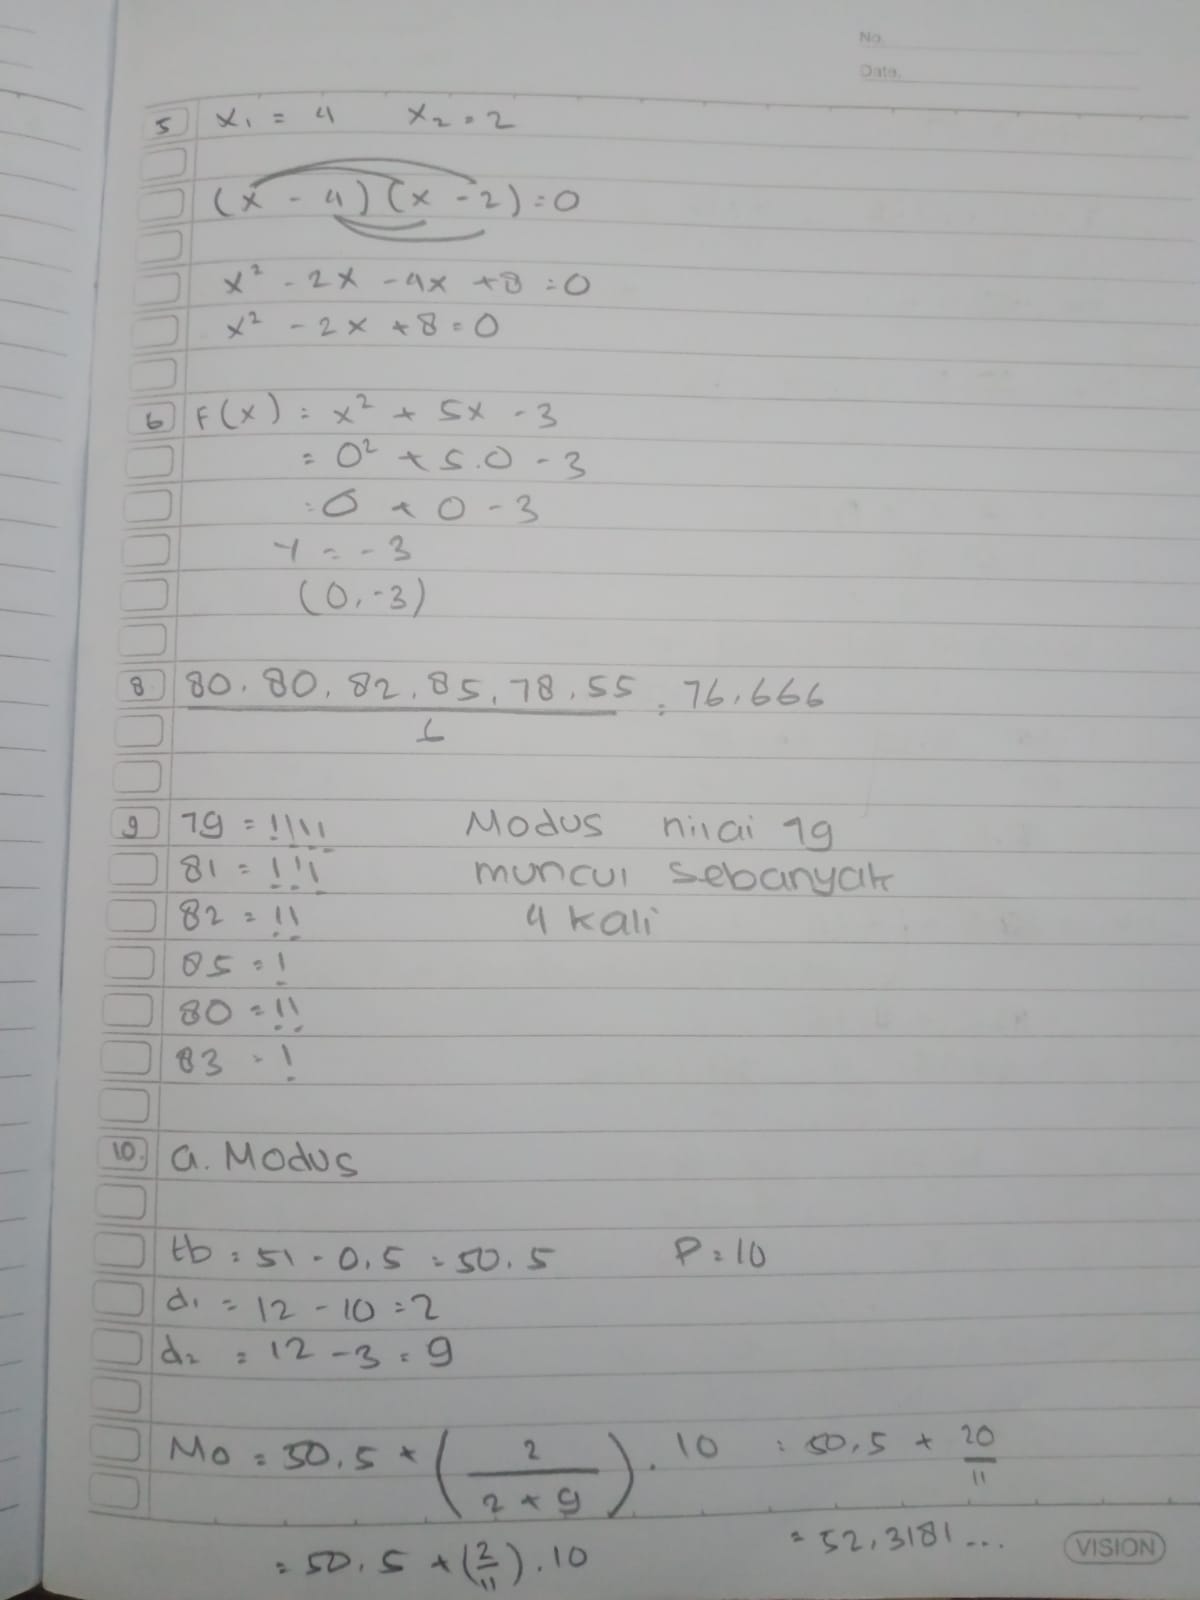 No.
Date.
5 x₁ = 4 x₂ = 2
(x - 4) (x - 2) = 0
x² - 2x - 4x + 8 = 0
x² - 2x + 8 = 0
6 F(x) = x² + 5x - 3
= 0² + 5.0 - 3
= 0 + 0 - 3
Y = -3
(0, -3)
8 80, 80, 82, 85, 78, 55 = 76,666
6
9 79 = !!!! Modus nilai 79
81 = !!! muncul sebanyak
82 = !! 4 kali
85 = !
80 = !!
83 = !
10. a. Modus
tb = 51 - 0,5 = 50,5 P = 10
d₁ = 12 - 10 = 2
d₂ = 12 - 3 = 9
Mo = 50,5 + (2 / 2 + 9) . 10 = 50,5 + 20/11
= 50,5 + (2/11) . 10 = 52,3181...
VISION